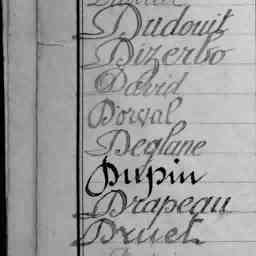 Dudouit
Dizerbo
David
Dorval
Deglane
Dupin
Drapeau
Druet